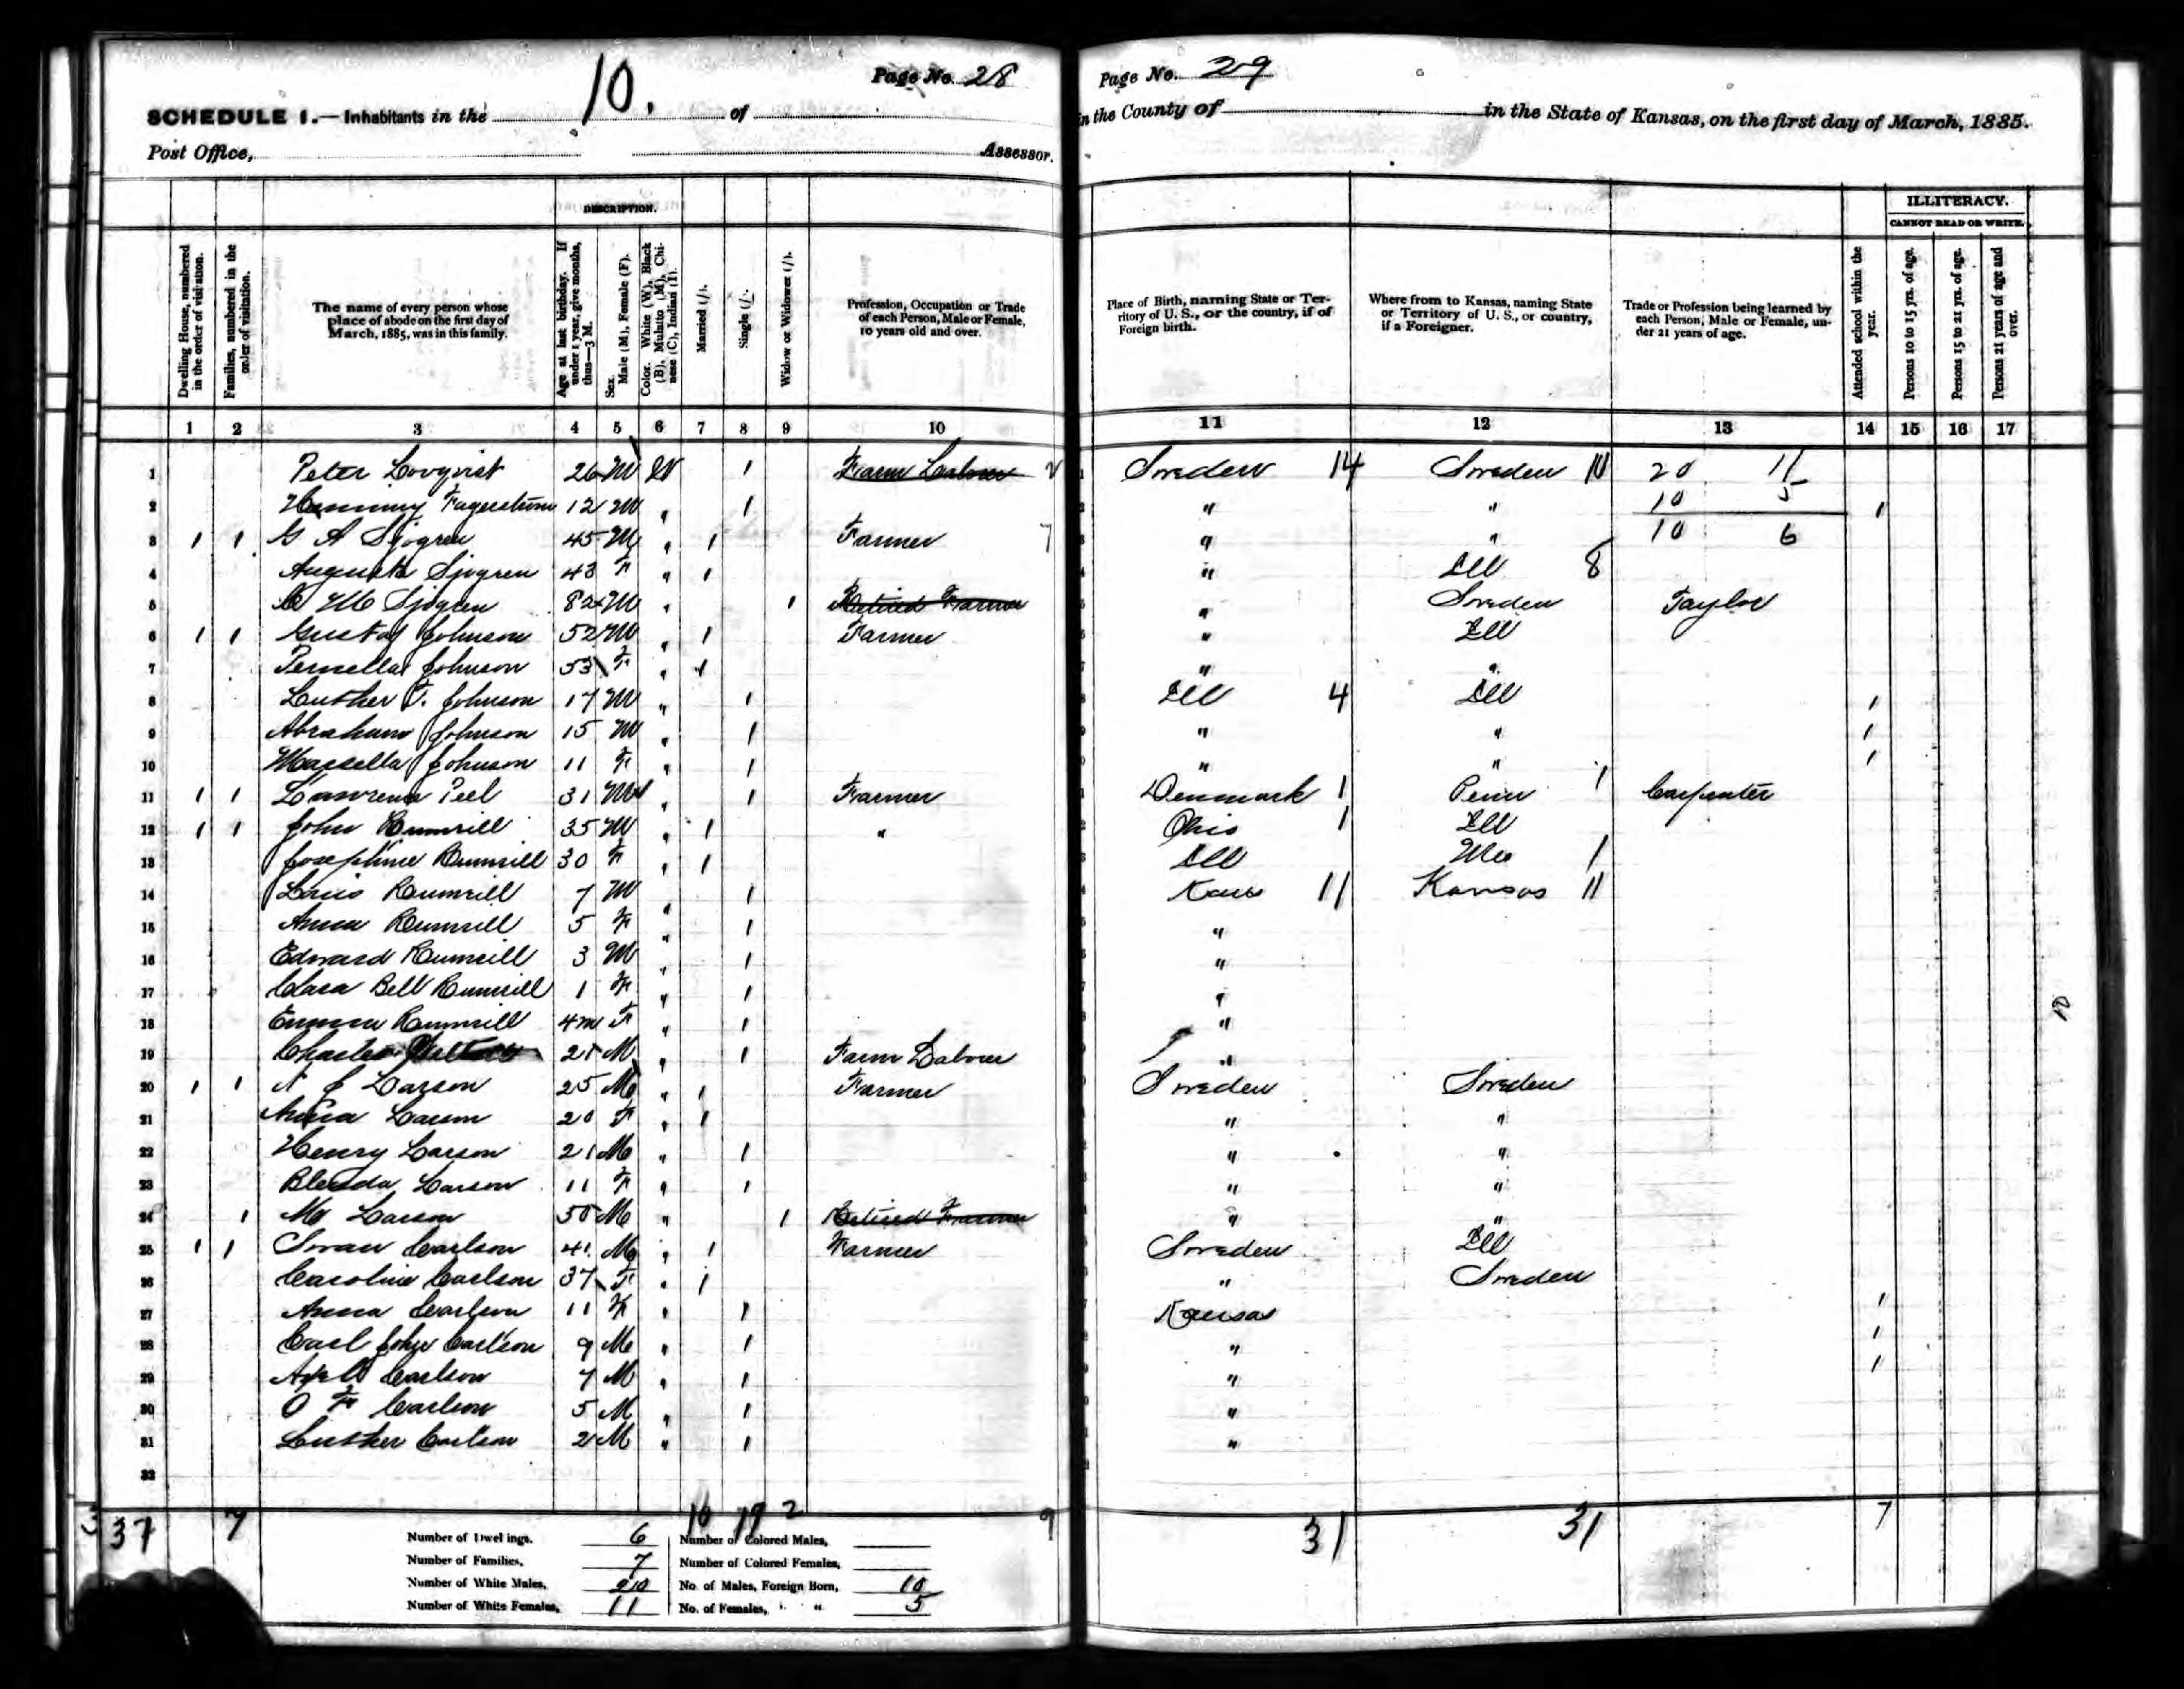 Page No. 28
10.
SCHEDULE 1.— Inhabitants in the of
Post Office, Assessor.
DESCRIPTION.
Dwelling House, numbered in the order of visitation.
Families, numbered in the order of visitation.
The name of every person whose place of abode on the first day of March, 1885, was in this family.
Age at last birthday. If under 1 year, give months, thus—3 M.
Sex. Male (M), Female (F).
Color. White (W), Black (B), Mulatto (M), Chinese (C), Indian (I).
Married (/).
Single (/).
Widow or Widower (/).
Profession, Occupation or Trade of each Person, Male or Female, 10 years old and over.
1 2 3 4 5 6 7 8 9 10
1 Peter Lovqvist 26 M W / Farm Labour
2 Fagerstrom 12 M " /
3 / / G A Sjogren 45 M " / Farmer 7
4 Augusta Sjogren 43 F " /
5 M Sjogren 82 M " / Retired Farmer
6 / / Gustaf Johnson 52 M " / Farmer
7 Pernella Johnson 53 F " /
8 Luther T. Johnson 17 M " /
9 Abraham Johnson 15 M " /
10 Massella Johnson 11 F " /
11 / / Lawrence Peel 31 M " / Farmer
12 / / John Rumrill 35 M " / "
13 Josephine Rumrill 30 F " /
14 Louis Rumrill 7 M " /
15 Anna Rumrill 5 F " /
16 Edward Rumrill 3 M " /
17 Clara Bell Rumrill 1 F " /
18 Emma Rumrill 4m F " /
19 Charles 21 M " / Farm Labour
20 / / N J Larson 25 M " / Farmer
21 Anna Larson 20 F " /
22 Henry Larson 21 M " /
23 Blenda Larson 11 F " /
24 / M Larson 50 M " / Retired Farmer
25 / / Swan Carlson 41 M " / Farmer
26 Caroline Carlson 37 F " /
27 Anna Carlson 11 F " /
28 Carl John Carlson 9 M " /
29 Axell Carlson 7 M " /
30 O F Carlson 5 M " /
31 Luther Carlson 2 M " /
32
37 7 10 19 2 9
Number of Dwellings, 6
Number of Families, 7
Number of White Males, 20
Number of White Females, 11
Number of Colored Males,
Number of Colored Females,
No. of Males, Foreign Born, 10
No. of Females, " " 5
Page No. 29
in the County of in the State of Kansas, on the first day of March, 1885.
ILLITERACY.
CANNOT READ OR WRITE.
Place of Birth, naming State or Territory of U. S., or the country, if of Foreign birth.
Where from to Kansas, naming State or Territory of U. S., or country, if a Foreigner.
Trade or Profession being learned by each Person, Male or Female, under 21 years of age.
Attended school within the year.
Persons 10 to 15 yrs. of age.
Persons 15 to 21 yrs. of age.
Persons 21 years of age and over.
11 12 13 14 15 16 17
Sweden 14 Sweden 20 11
" " 10 5 /
" " 10 6
" Ill 8
" Sweden Taylor
" Ill
" "
Ill 4 Ill /
" " /
" " /
Denmark 1 Penn 1 Carpenter
Ohio 1 Ill
Ill 1
Kans 11 Kansas 11
"
"
"
"
"
Sweden Sweden
" "
" "
" "
" "
Sweden Ill
" Sweden
Kansas /
" /
" /
"
"
31 31 7